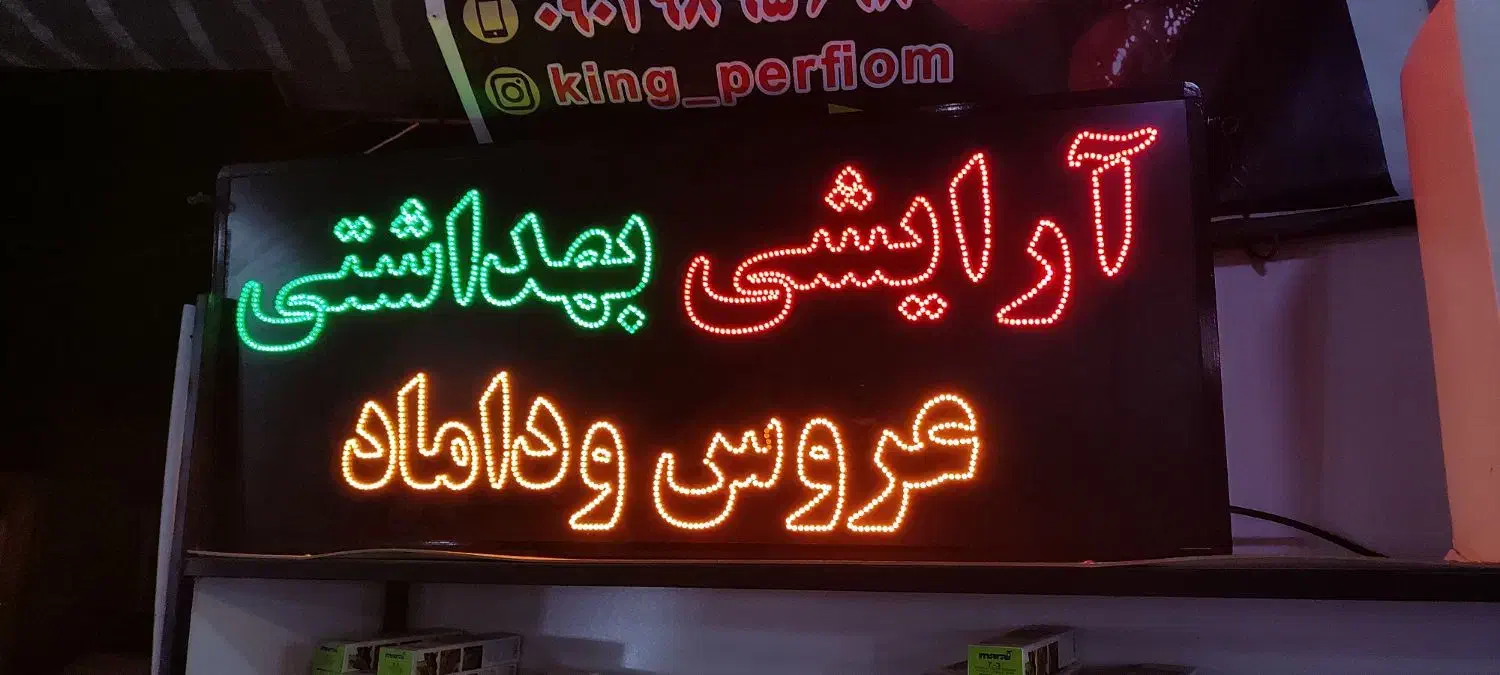 king_perfiom
آرایشی بهداشتی
عروس وداماد